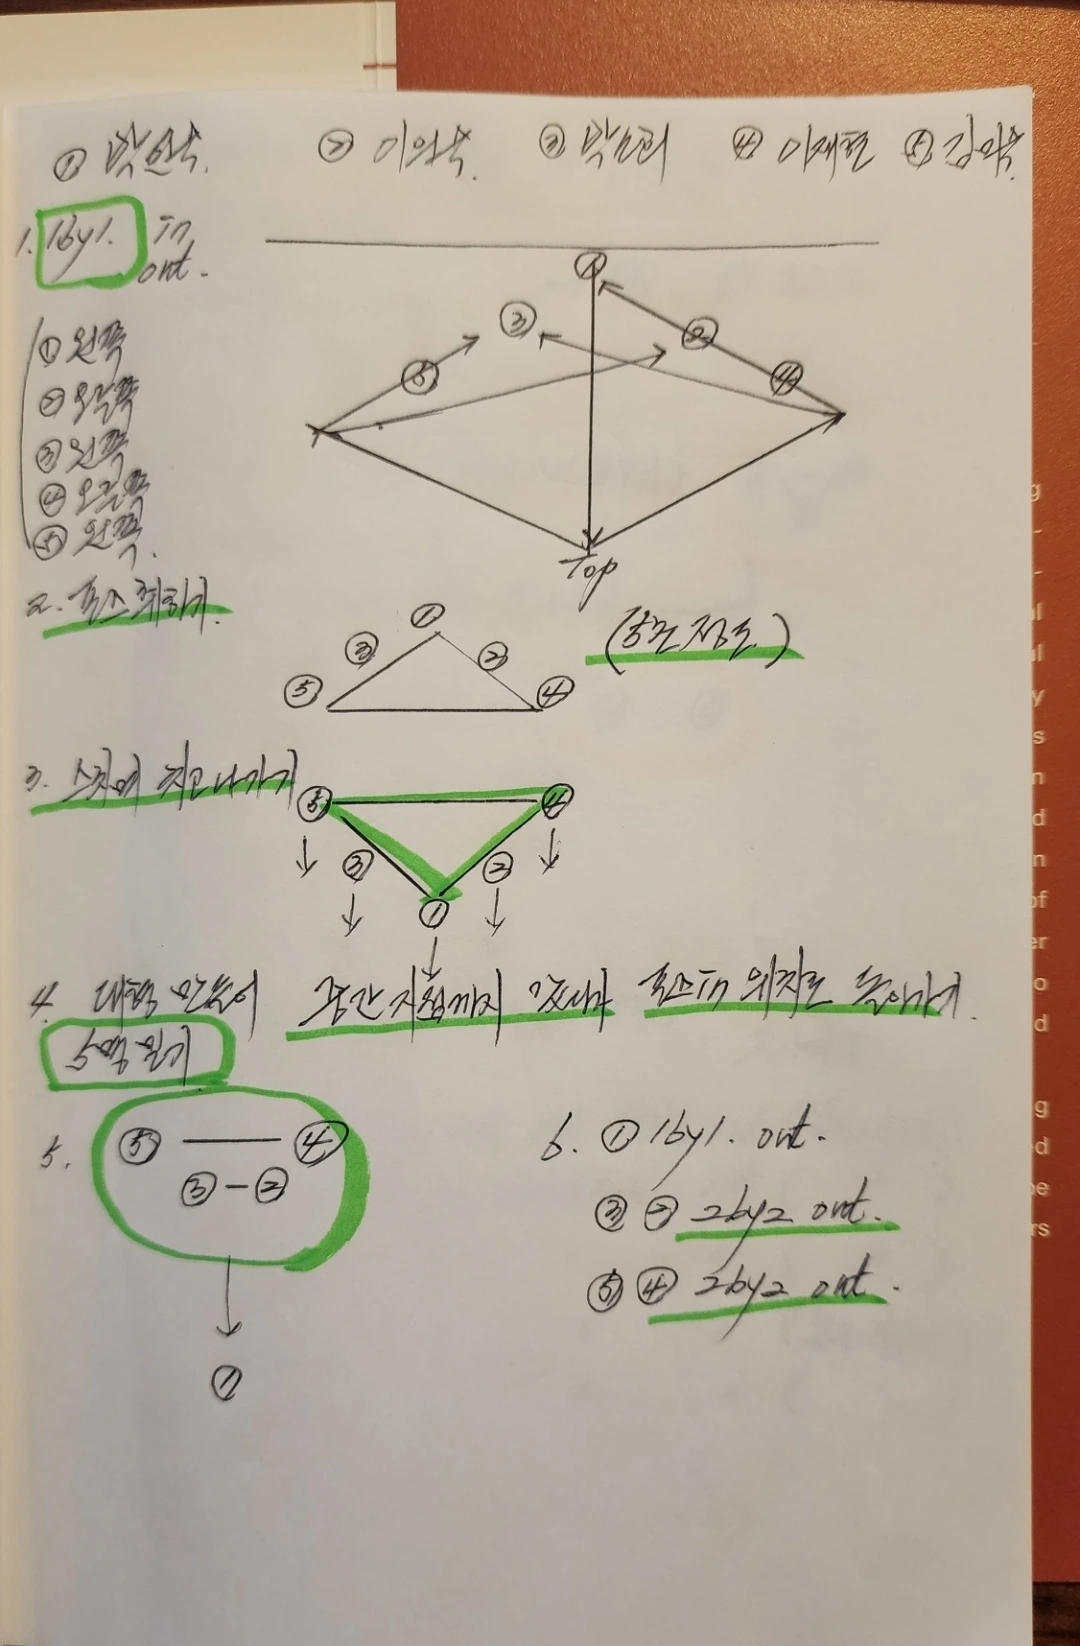 ① 박현숙. ② 이의숙. ③ 박보리 ④ 이재현 ⑤ 김미숙.
1. 1by1. in
out.
①
③ ②
⑤ ④
Top
① 왼쪽
② 오른쪽
③ 왼쪽
④ 오른쪽
⑤ 왼쪽.
2. 포즈 취하기.
①
③ ②
⑤ ④
3. 스쳐 지고 나가기
⑤ ④
③ ②
①
4. 대형 만들어 중간 지점까지 갔다가 포즈in 위치로 돌아가기.
5.
⑤ — ④
③ - ②
①
6. ① 1by1. out.
③ ② 2by2 out.
⑤ ④ 2by2 out.